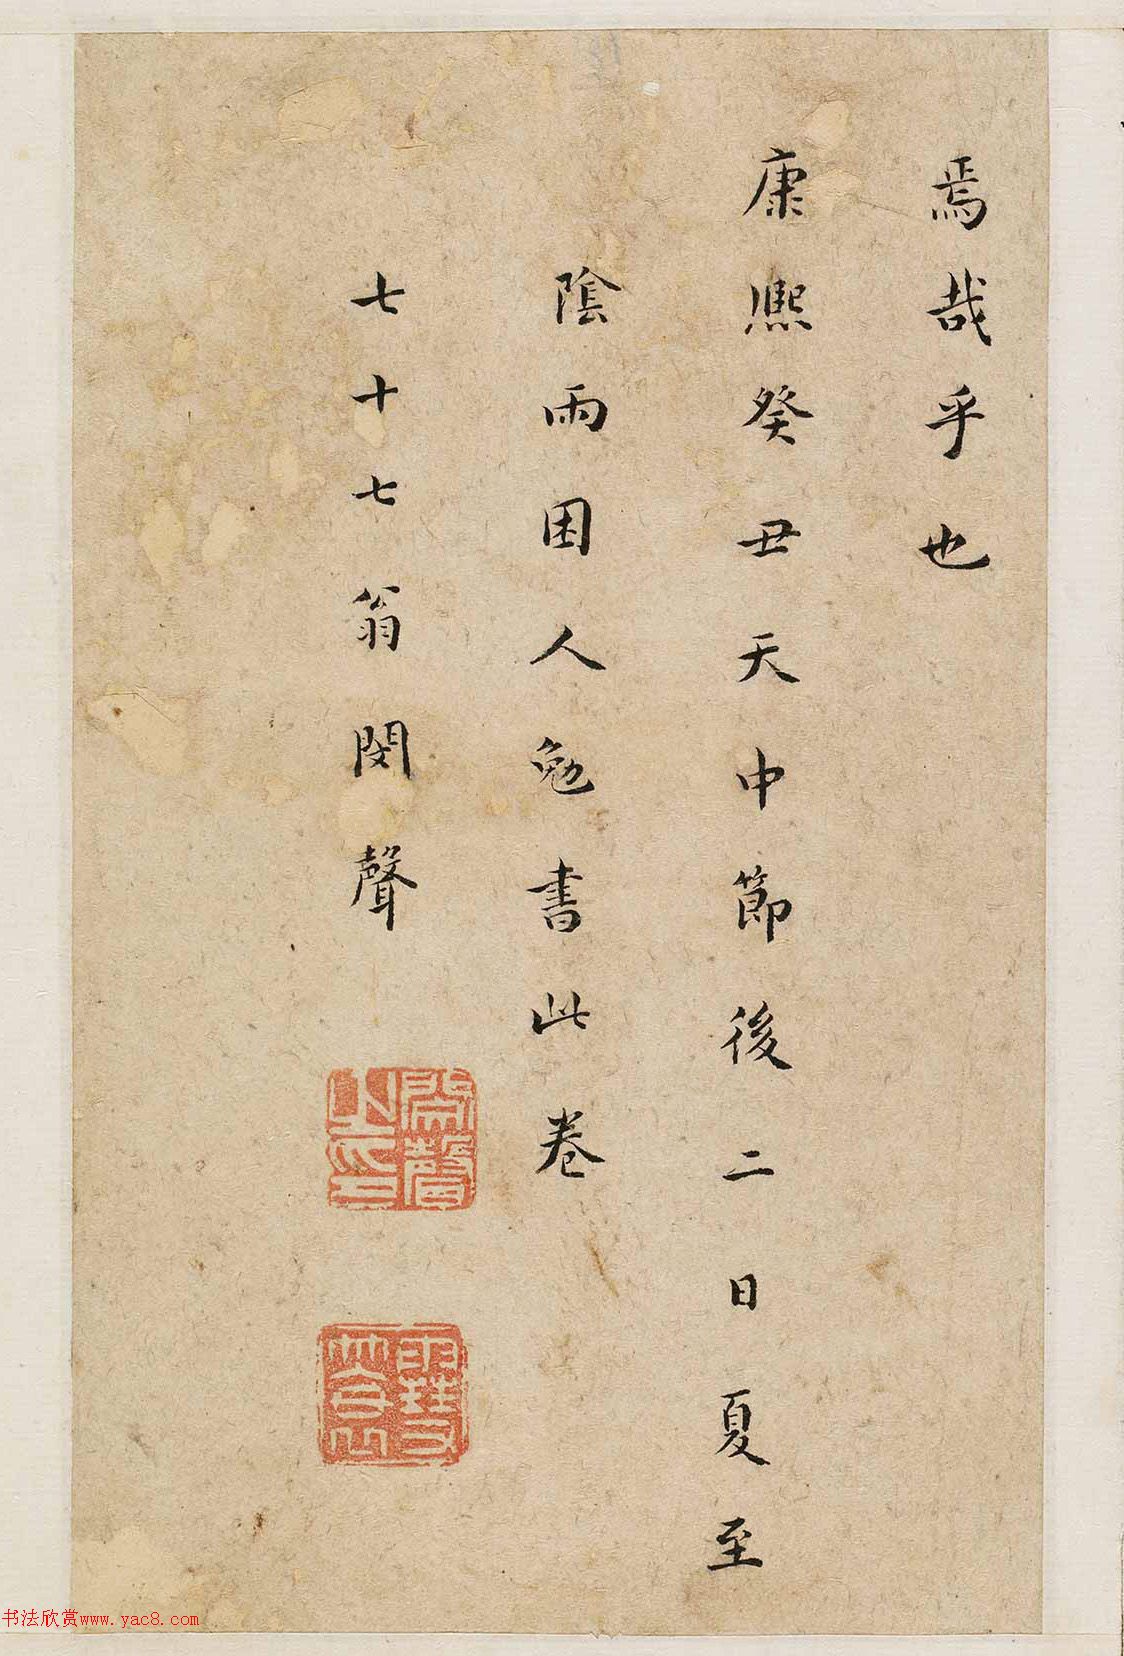 焉哉乎也
康熙癸丑天中節後二日夏至
陰雨困人勉書此卷
七十七翁閔聲
閔聲之印
書法欣赏www.yac8.com